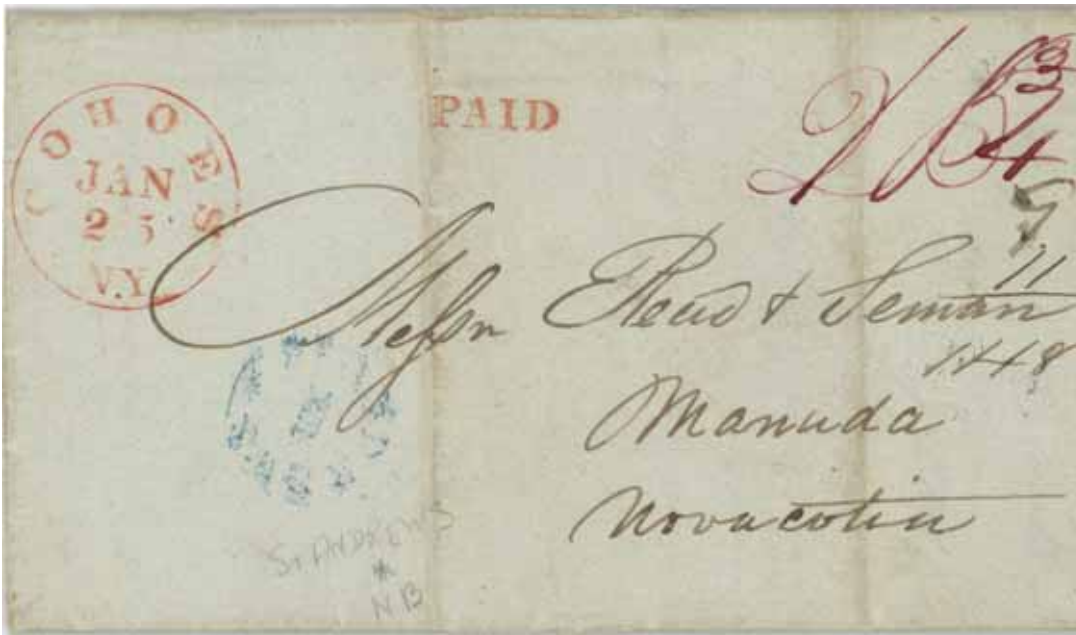 COHOES
JAN
25
N.Y
PAID
Messrs Reud & Seman
Manuda
Novacotia
11
1448
St ANDREWS
NB